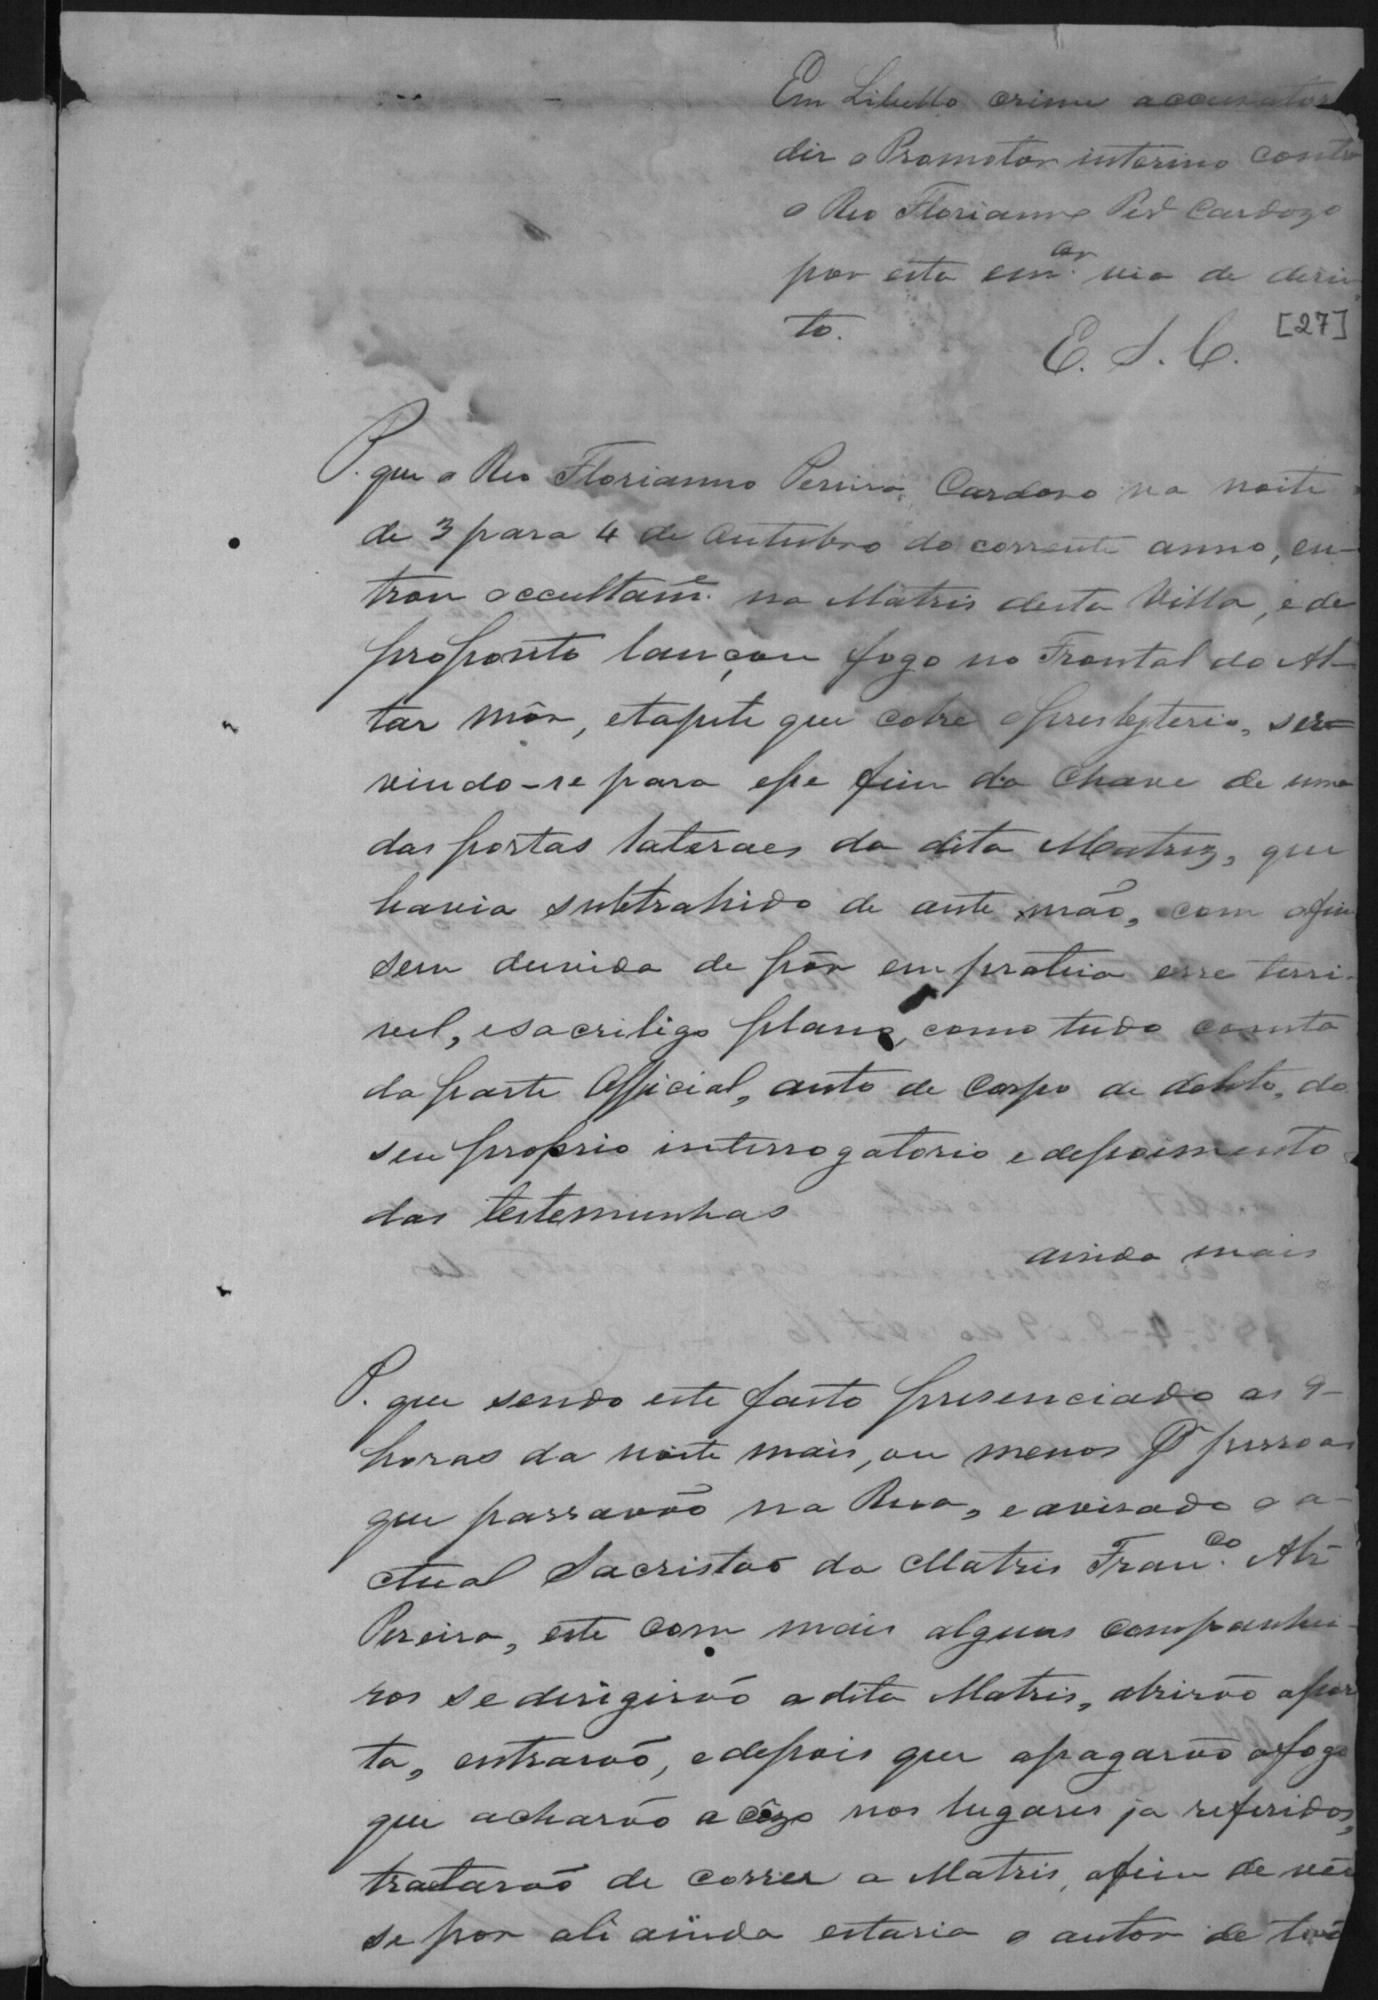 Em Libello crime accusator
diz o Promotor interino contra
o Reo Florianno Per.ª Cardozo
por esta e m.or via de direi
to.
E. S. C. [27]
P. que o Reo Florianno Pereira Cardozo na noite
de 3 para 4 de Outubro do corrente anno, en-
trou occultam.e na Matris desta Villa, e de
proposito lançou fogo no Frontal do Al-
tar Môr, e tapete que cobre o presbyterio, ser=
vindo-se para esse fim da chave de uma
das portas lateraes da dita Matriz, que
havia subtrahido de ante mão, com o fim
sem duvida de pôr em pratica esse terri-
vel, e sacriligo plano, como tudo consta
da parte Official, auto de Corpo de delito, do
seu proprio interrogatorio e depoimento
das testemunhas
ainda mais
P. que sendo este facto presenciado as 9-
horas da noite mais, ou menos pr pessoas
que passavão na Rua, e avisado o a-
ctual Sacristão da Matris Fran.co Alz
Pereira, este com mais alguns companhei-
ros se dirigirão a dita Matris, abrirão a por
ta, entrarão, e depois que apagarão o fogo
que acharão acêzo nos lugares ja referidos,
tratarão de correr a Matris, afim de vêr
se por ali ainda estaria o autor de